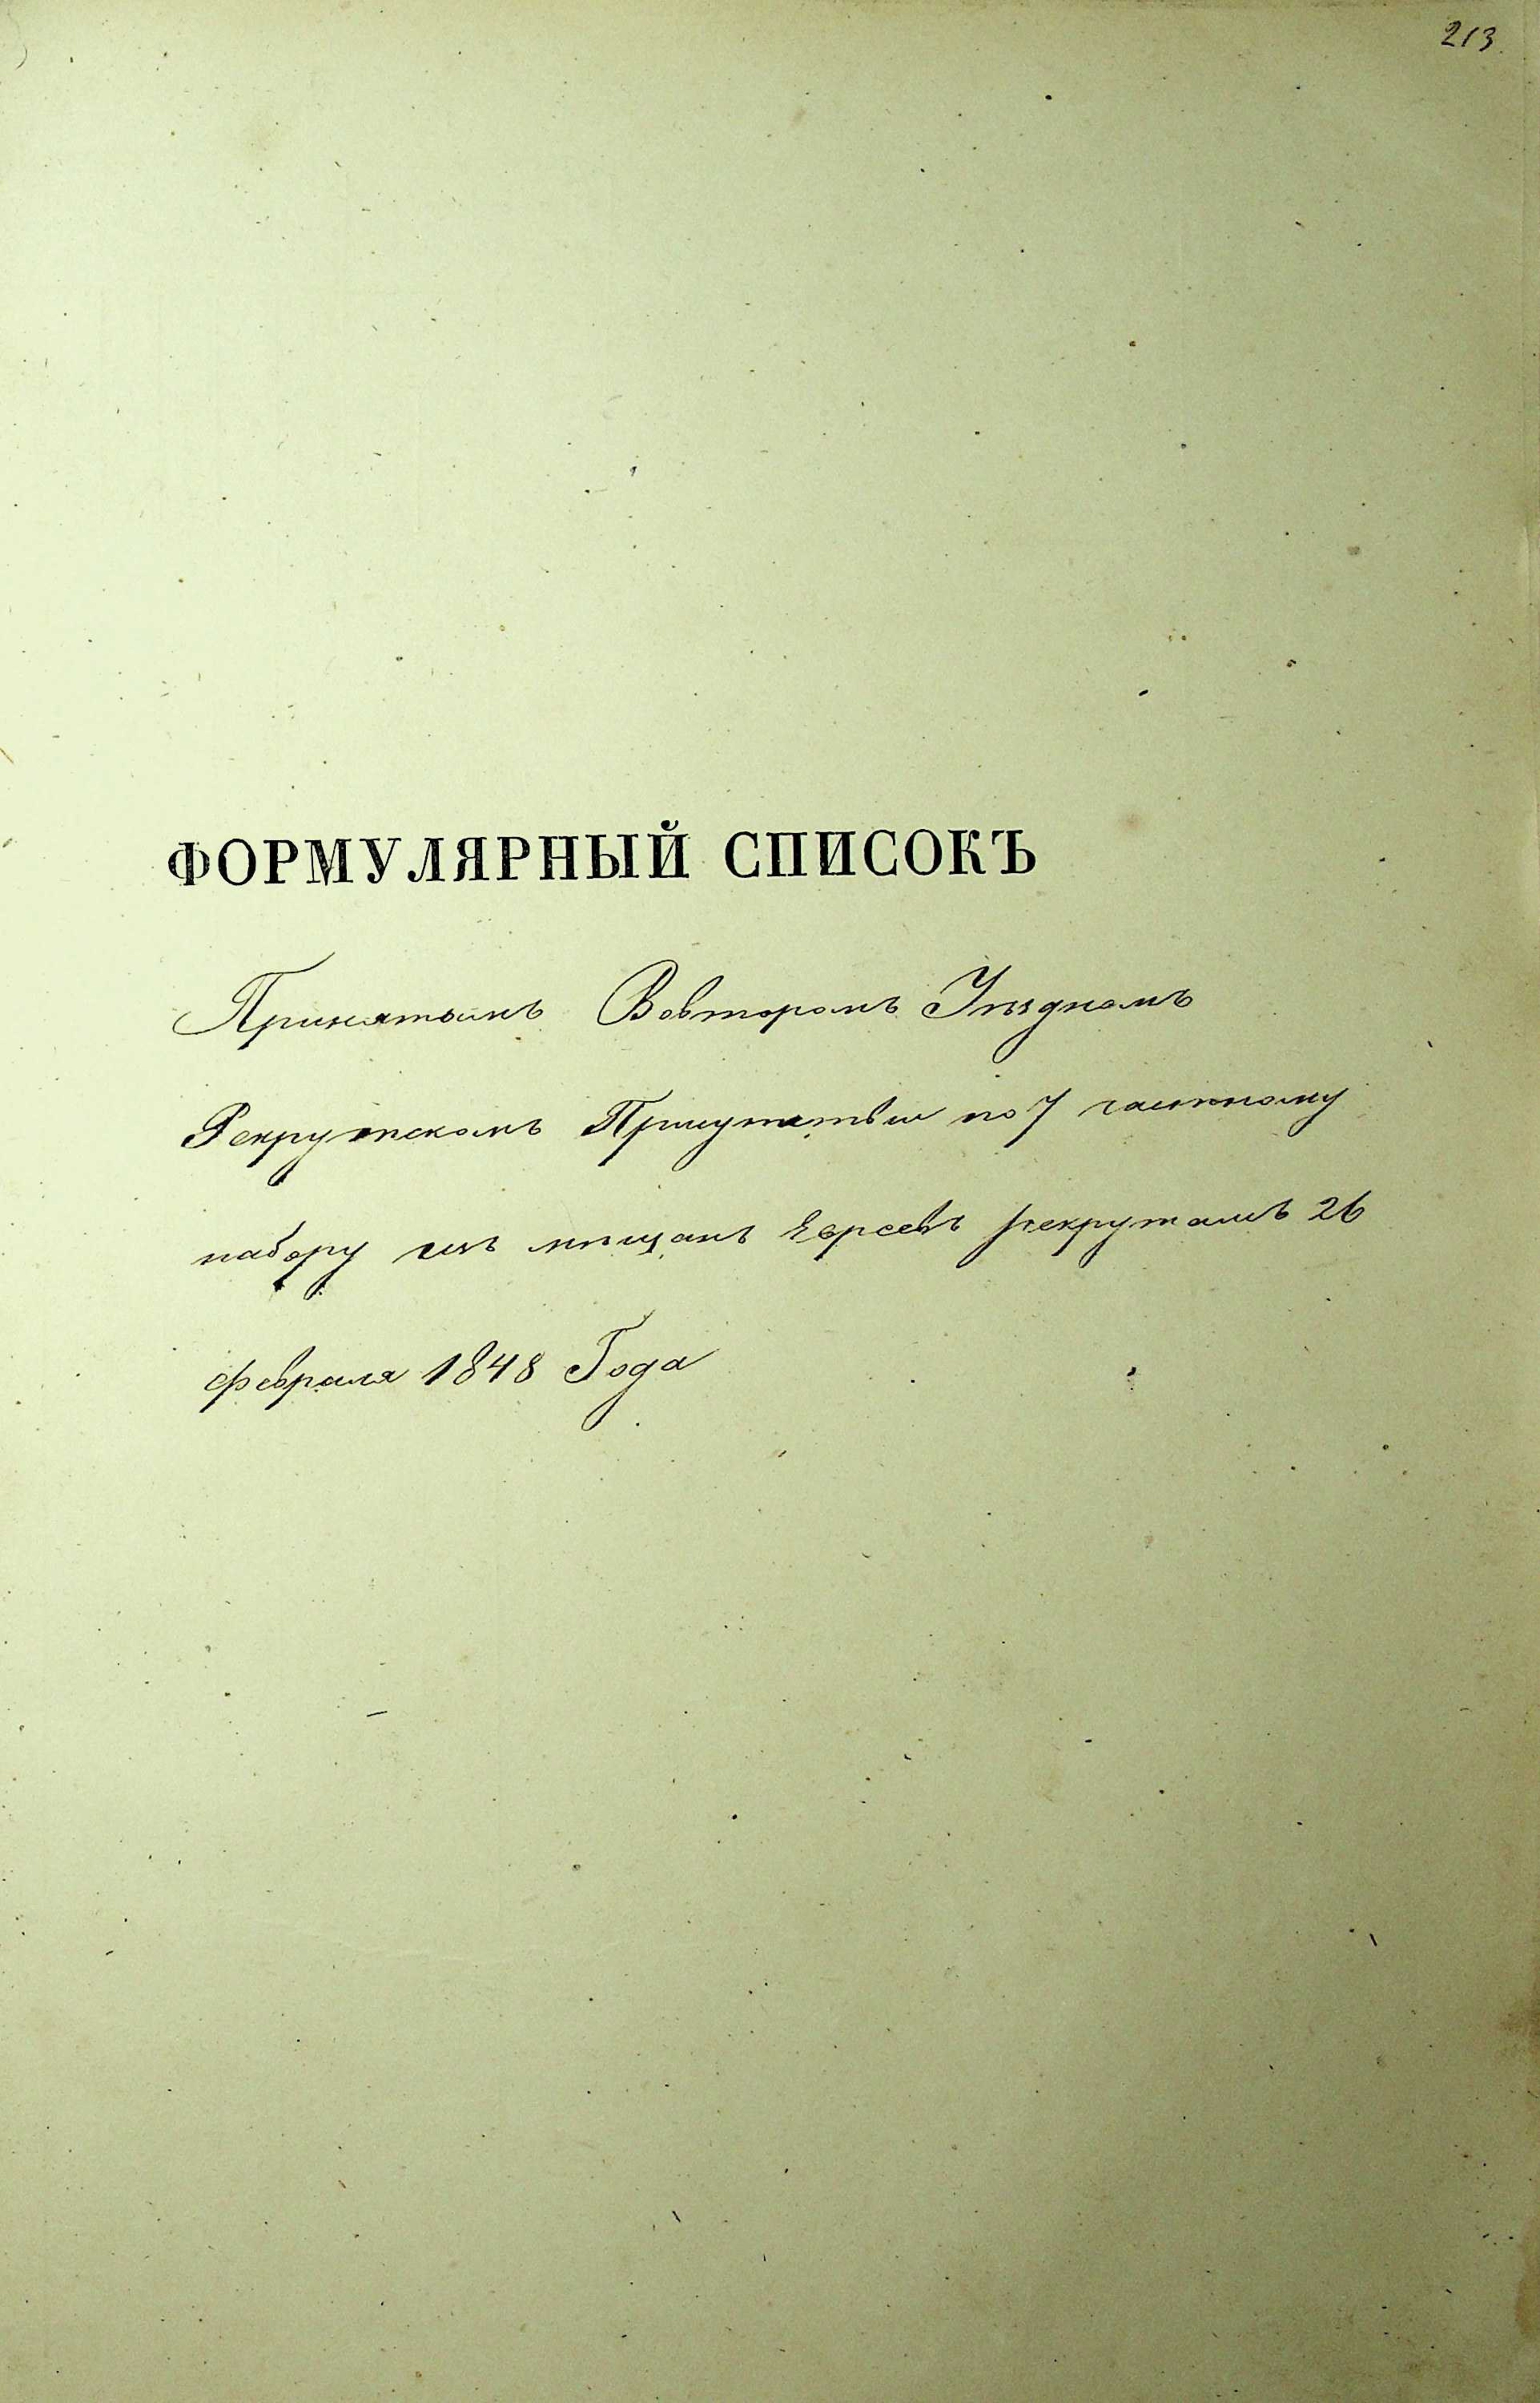 213
ФОРМУЛЯРНЫЙ СПИСОКЪ
Принятымъ Вовторомъ Уѣздномъ
Рекрутскомъ Присутствии по 7 частному
набору изъ мѣщанъ Евреевъ рекрутамъ 26
февраля 1848 Года